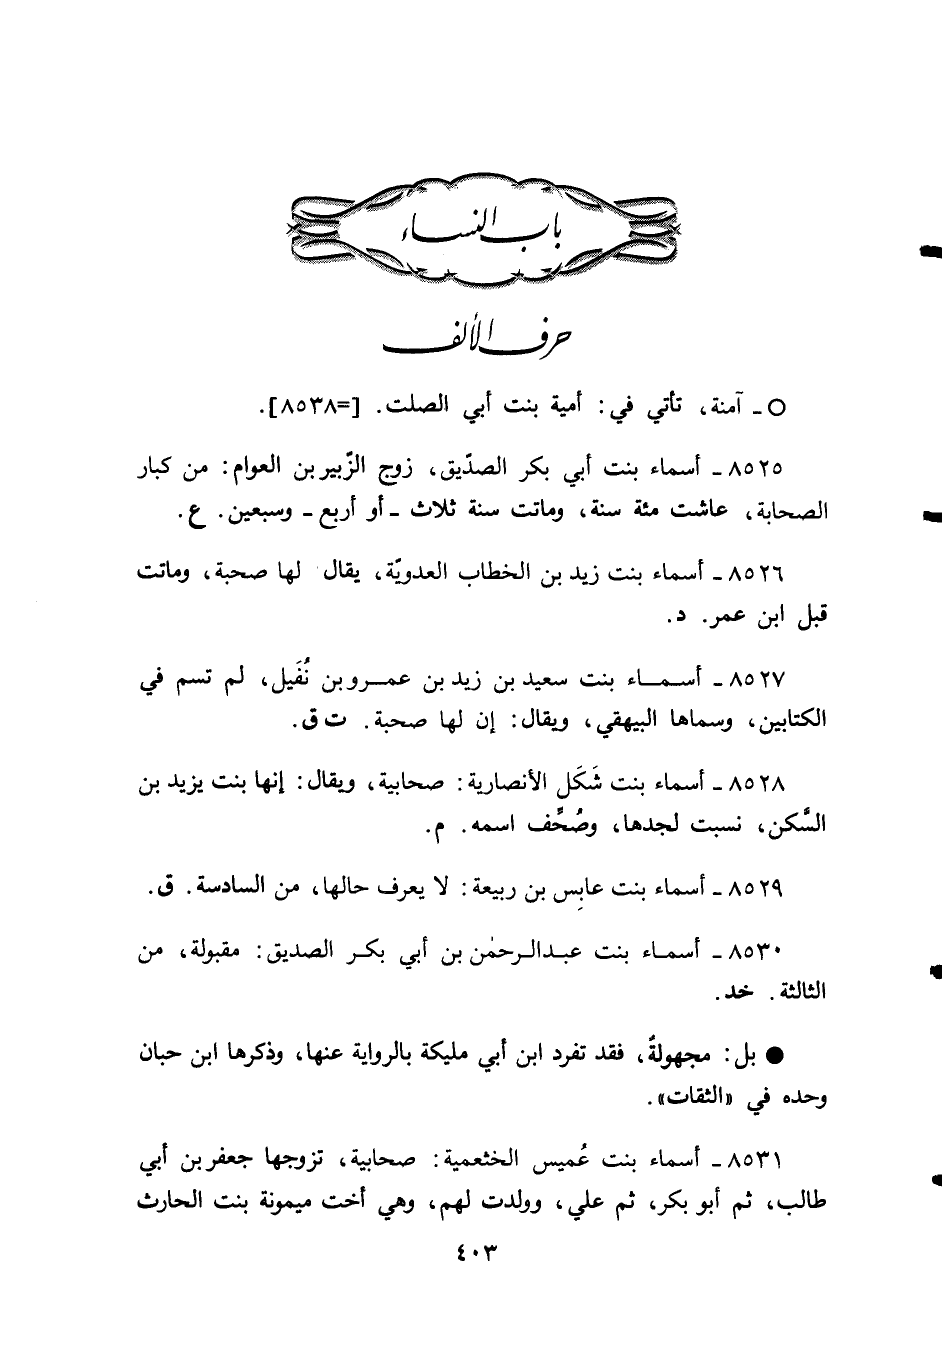 باب النساء
حرف الألف
○ ـ آمنة، تأتي في: أمية بنت أبي الصلت. [=٨٥٣٨].
٨٥٢٥ ـ أسماء بنت أبي بكر الصدّيق، زوج الزّبير بن العوام: من كبار
الصحابة، عاشت مئة سنة، وماتت سنة ثلاث ـ أو أربع ـ وسبعين. ع.
٨٥٢٦ ـ أسماء بنت زيد بن الخطاب العدويّة، يقال لها صحبة، وماتت
قبل ابن عمر. د.
٨٥٢٧ ـ أسماء بنت سعيد بن زيد بن عمرو بن نُفَيل، لم تسم في
الكتابين، وسماها البيهقي، ويقال: إن لها صحبة. ت ق.
٨٥٢٨ ـ أسماء بنت شَكَل الأنصارية: صحابية، ويقال: إنها بنت يزيد بن
السَّكن، نسبت لجدها، وصُحِّف اسمه. م.
٨٥٢٩ ـ أسماء بنت عابِس بن ربيعة: لا يعرف حالها، من السادسة. ق.
٨٥٣٠ ـ أسماء بنت عبدالرحمٰن بن أبي بكر الصديق: مقبولة، من
الثالثة. خد.
● بل: مجهولةٌ، فقد تفرد ابن أبي مليكة بالرواية عنها، وذكرها ابن حبان
وحده في «الثقات».
٨٥٣١ ـ أسماء بنت عُميس الخثعمية: صحابية، تزوجها جعفر بن أبي
طالب، ثم أبو بكر، ثم علي، وولدت لهم، وهي أخت ميمونة بنت الحارث
٤٠٣